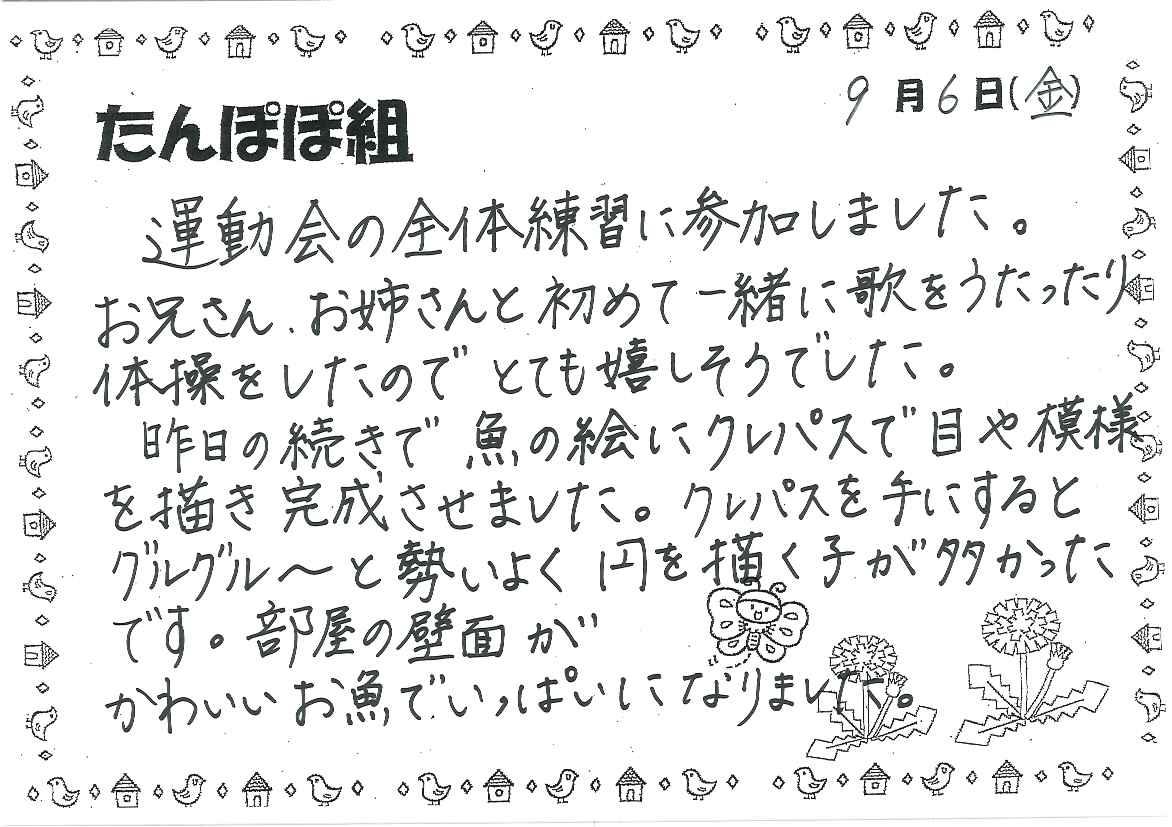 9月6日(金)
たんぽぽ組
運動会の全体練習に参加しました。
お兄さん、お姉さんと初めて一緒に歌をうたったり
体操をしたのでとても嬉しそうでした。
昨日の続きで魚の絵にクレパスで目や模様
を描き完成させました。クレパスを手にすると
グルグル〜と勢いよく円を描く子が多かった
です。部屋の壁面が
かわいいお魚でいっぱいになりました。